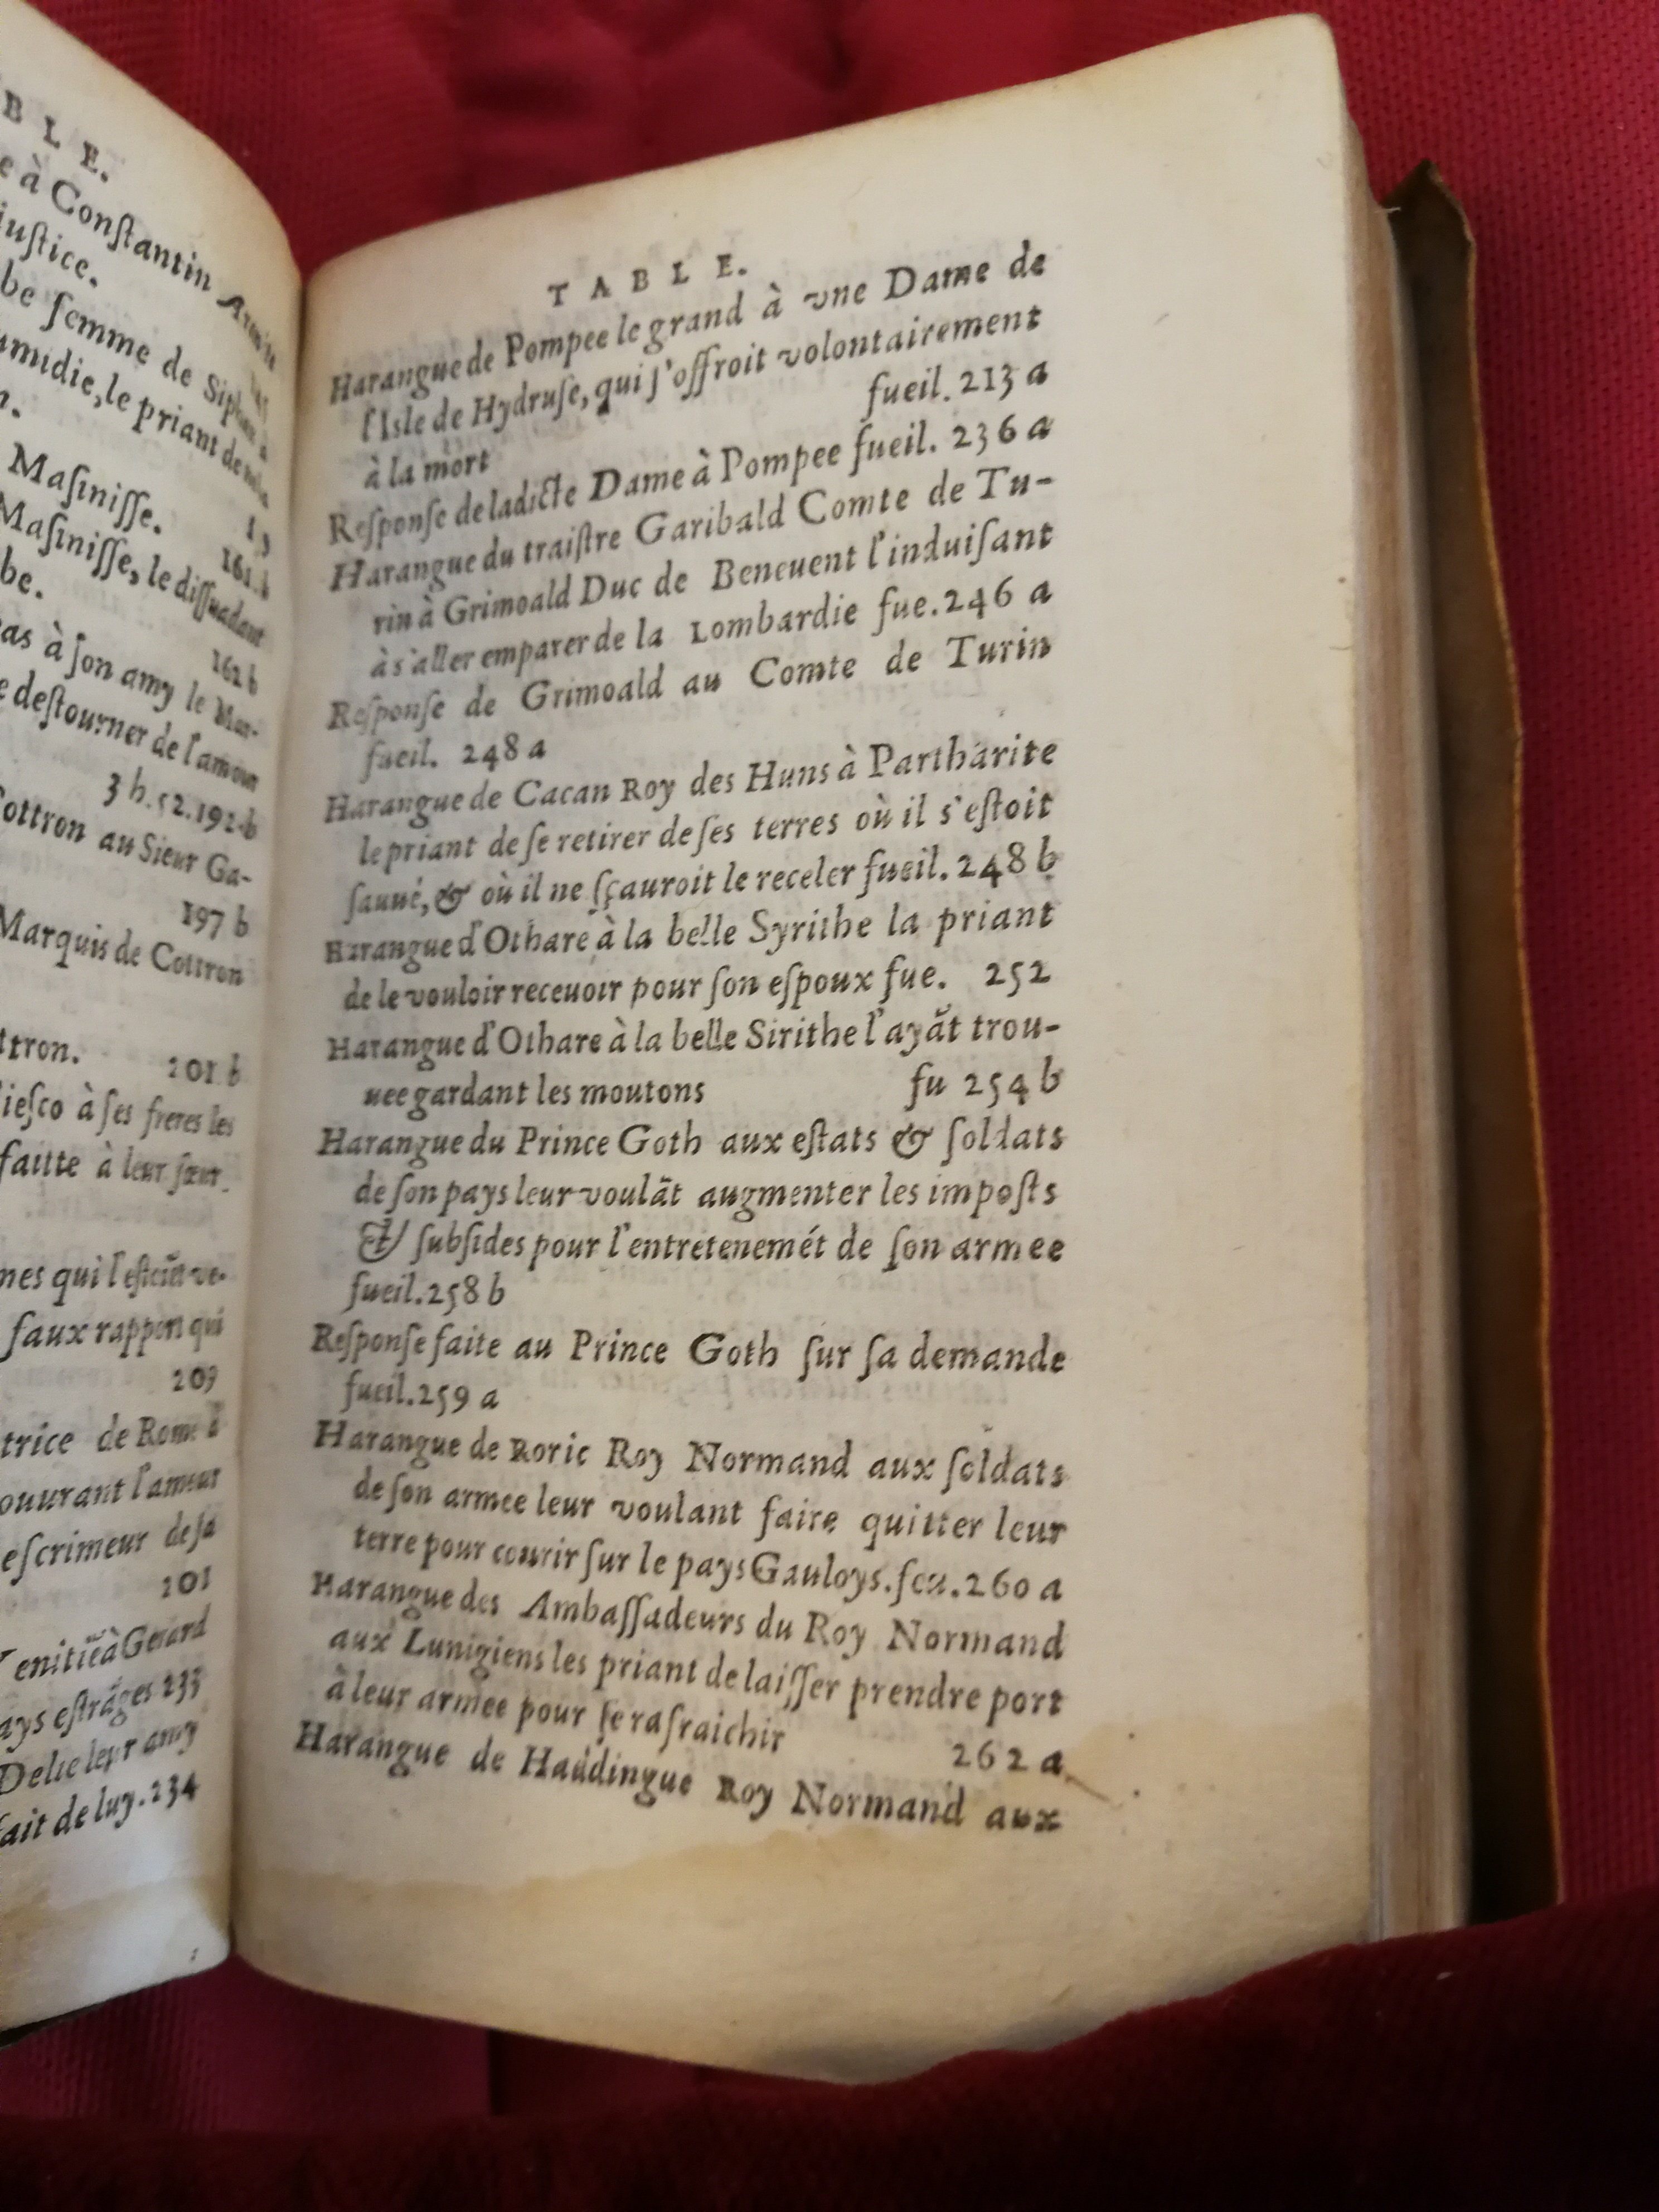 BLE.
e à Constantin
iustice.
be femme de
umidie, le priant de
n.
Masinisse.
161.b
Masinisse, le dissuadant
be.
162 b
as à son amy le Mar-
e destourner de l'amour
3 b.52.192.b
ottron au Sieur Ga-
197 b
Marquis de Cottron
ttron. 201 b
iesco à ses freres les
faitte à leur sœur.
nes qui l'estoiẽt ve-
faux rapport qui
209
trice de Rome à
ouurant l'amour
escrimeur de sa
201
Venitiẽ à Gerard
ays estrãges 233
Delie leur amy
fait de luy. 234
TABLE.
Harangue de Pompee le grand à vne Dame de
l'Isle de Hydruse, qui s'offroit volontairement
à la mort fueil. 213 a
Response de ladicte Dame à Pompee fueil. 236 a
Harangue du traistre Garibald Comte de Tu-
rin à Grimoald Duc de Beneuent l'induisant
à s'aller emparer de la Lombardie fue. 246 a
Response de Grimoald au Comte de Turin
fueil. 248 a
Harangue de Cacan Roy des Huns à Partharite
le priant de se retirer de ses terres où il s'estoit
sauué, & où il ne sçauroit le receler fueil. 248 b
Harangue d'Othare à la belle Syrithe la priant
de le vouloir receuoir pour son espoux fue. 252
Harangue d'Othare à la belle Sirithe l'ayãt trou-
uee gardant les moutons fu 254 b
Harangue du Prince Goth aux estats & soldats
de son pays leur voulãt augmenter les imposts
& subsides pour l'entretenemét de son armee
fueil. 258 b
Response faite au Prince Goth sur sa demande
fueil. 259 a
Harangue de Roric Roy Normand aux soldats
de son armee leur voulant faire quitter leur
terre pour courir sur le pays Gauloys. feu. 260 a
Harangue des Ambassadeurs du Roy Normand
aux Lunigiens les priant de laisser prendre port
à leur armee pour se rafraichir 262 a
Harangue de Haddingue Roy Normand aux